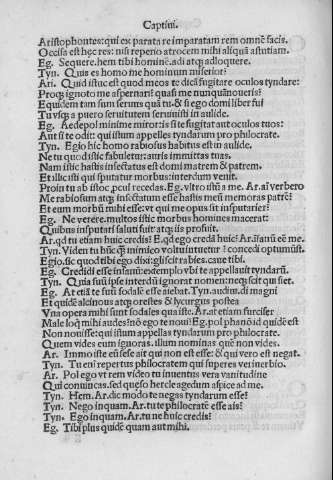 Captiui.
Aristophontes: qui ex parata re imparatam rem omnē facis.
Occisa est hęc res: nisi reperio atrocem mihi aliquā astutiam.
Eg. Sequere. hem tibi hominē. adi atq; adloquere.
Tyn. Quis es homo me hominum miserior?
Ari. Quid istuc est quod meos te dicā fugitare oculos tyndare:
Proq; ignoto me aspernari: quasi me nunquā noueris?
Equidem tam sum seruus quā tu. & si ego domi liber fui
Tu vsq; a puero seruitutem seruiuisti in aulide.
Eg. Aedepol minime miror: si te fugitat aut oculos tuos:
Aut si te odit: qui istum appelles tyndarum pro philocrate.
Tyn. Egio hic homo rabiosus habitus est in aulide.
Ne tu quod istic fabuletur: auris immittas tuas.
Nam istic hastis insectatus est domi matrem & patrem.
Et illic isti qui sputatur morbus: interdum venit.
Proin tu ab istoc. pcul recedas. Eg. vltro istū a me. Ar. ai verbero
Me rabiosum atq; insectatum esse hastis meū memoras patrē?
Et eum morbū mihi esse: vt qui me opus sit insputarier?
Eg. Ne verere. multos istic morbus homines macerat:
Quibus insputari saluti fuit atq; iis profuit.
Ar. qd tu etiam huic credis? Eg. qd ego credā huic? Ar. īsanū eē me.
Tyn. Viden tu hūc q̄ inimico voltu intuetur? concedi optumūst.
Egio. sic quod tibi ego dixi: gliscit rabies. caue tibi.
Eg. Credidi esse insanū: extemplo vbi te appellauit tyndarū.
Tyn. Quin suū ipse interdū ignorat nomen: neq; scit qui siet.
Eg. At etiā te suū sodalē esse aiebat. Tyn. audiui. di magni
Et quidē alcinous atq; orestes & lycurgus postea
Vna opera mihi sunt sodales qua iste. Ar. at etiam furcifer
Male loq̄ mihi audes? nō ego te noui? Eg. pol phanō id quidē est
Non nouisse: qui istum appelles tyndarum pro philocrate.
Quem vides eum ignoras. illum nominas quē non vides.
Ar. Immo iste eū sese ait qui non est esse: & qui vero est negat.
Tyn. Tu enī repertus philocratem qui superes veriuerbio.
Ar. Pol ego vt rem video tu inuentus vera vanitudine
Qui conuincas. sed quęso hercle agedum aspice ad me.
Tyn. Hem. Ar. dic modo te negas tyndarum esse?
Tyn. Nego inquam. Ar. tu te philocratē esse ais?
Tyn. Ego inquam. Ar. tu ne huic credis?
Eg. Tibi plus quidē quam aut mihi.